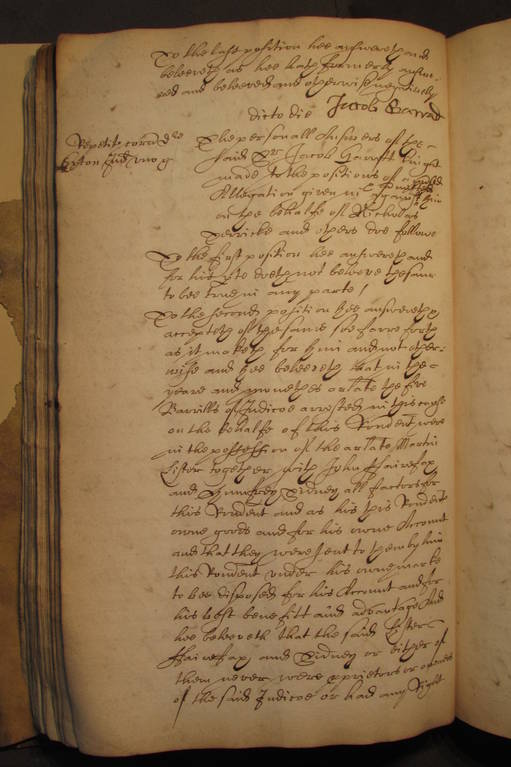 To the last position hee answereth and
beleeveth as hee hath formerly answe-
red and beleeved and otherwise negatively
dicto die Jacob Garrad
Repetit: corã d:re
Exton
The personall Answers of the
said Sr: Jacob Garrett knight
made to the positions of
Allegation given in
on the behalfe of Nicholas
Herricke and others doe followe
To the first position hee answereth and
for his pte doth not beleeve the same
to bee true in any parte /
To the second position hee answereth
accepteth of the same soe farre forth
as it maketh for him and not other-
wise and hee beleeveth that in the
yeare and moneths arlate the five
Barrills of Indicoe arrested in this cause
on the behalfe of this Rendent were
in the possession of the arlate Martin
Lister together with John Ffairefax
and Humfrey Sidney all factors for
this Rendent and as his this Rendents
owne goods and for his owne Account
and that they were sent to them by him
this Rendent under his owne marke
to bee disposed for his Account and for
his best benefitt and advantage And
hee beleeveth that the said Lister
Ffairefax and Sidney or either of
them never were pprietors or owners
of the said Indicoe or had any Right